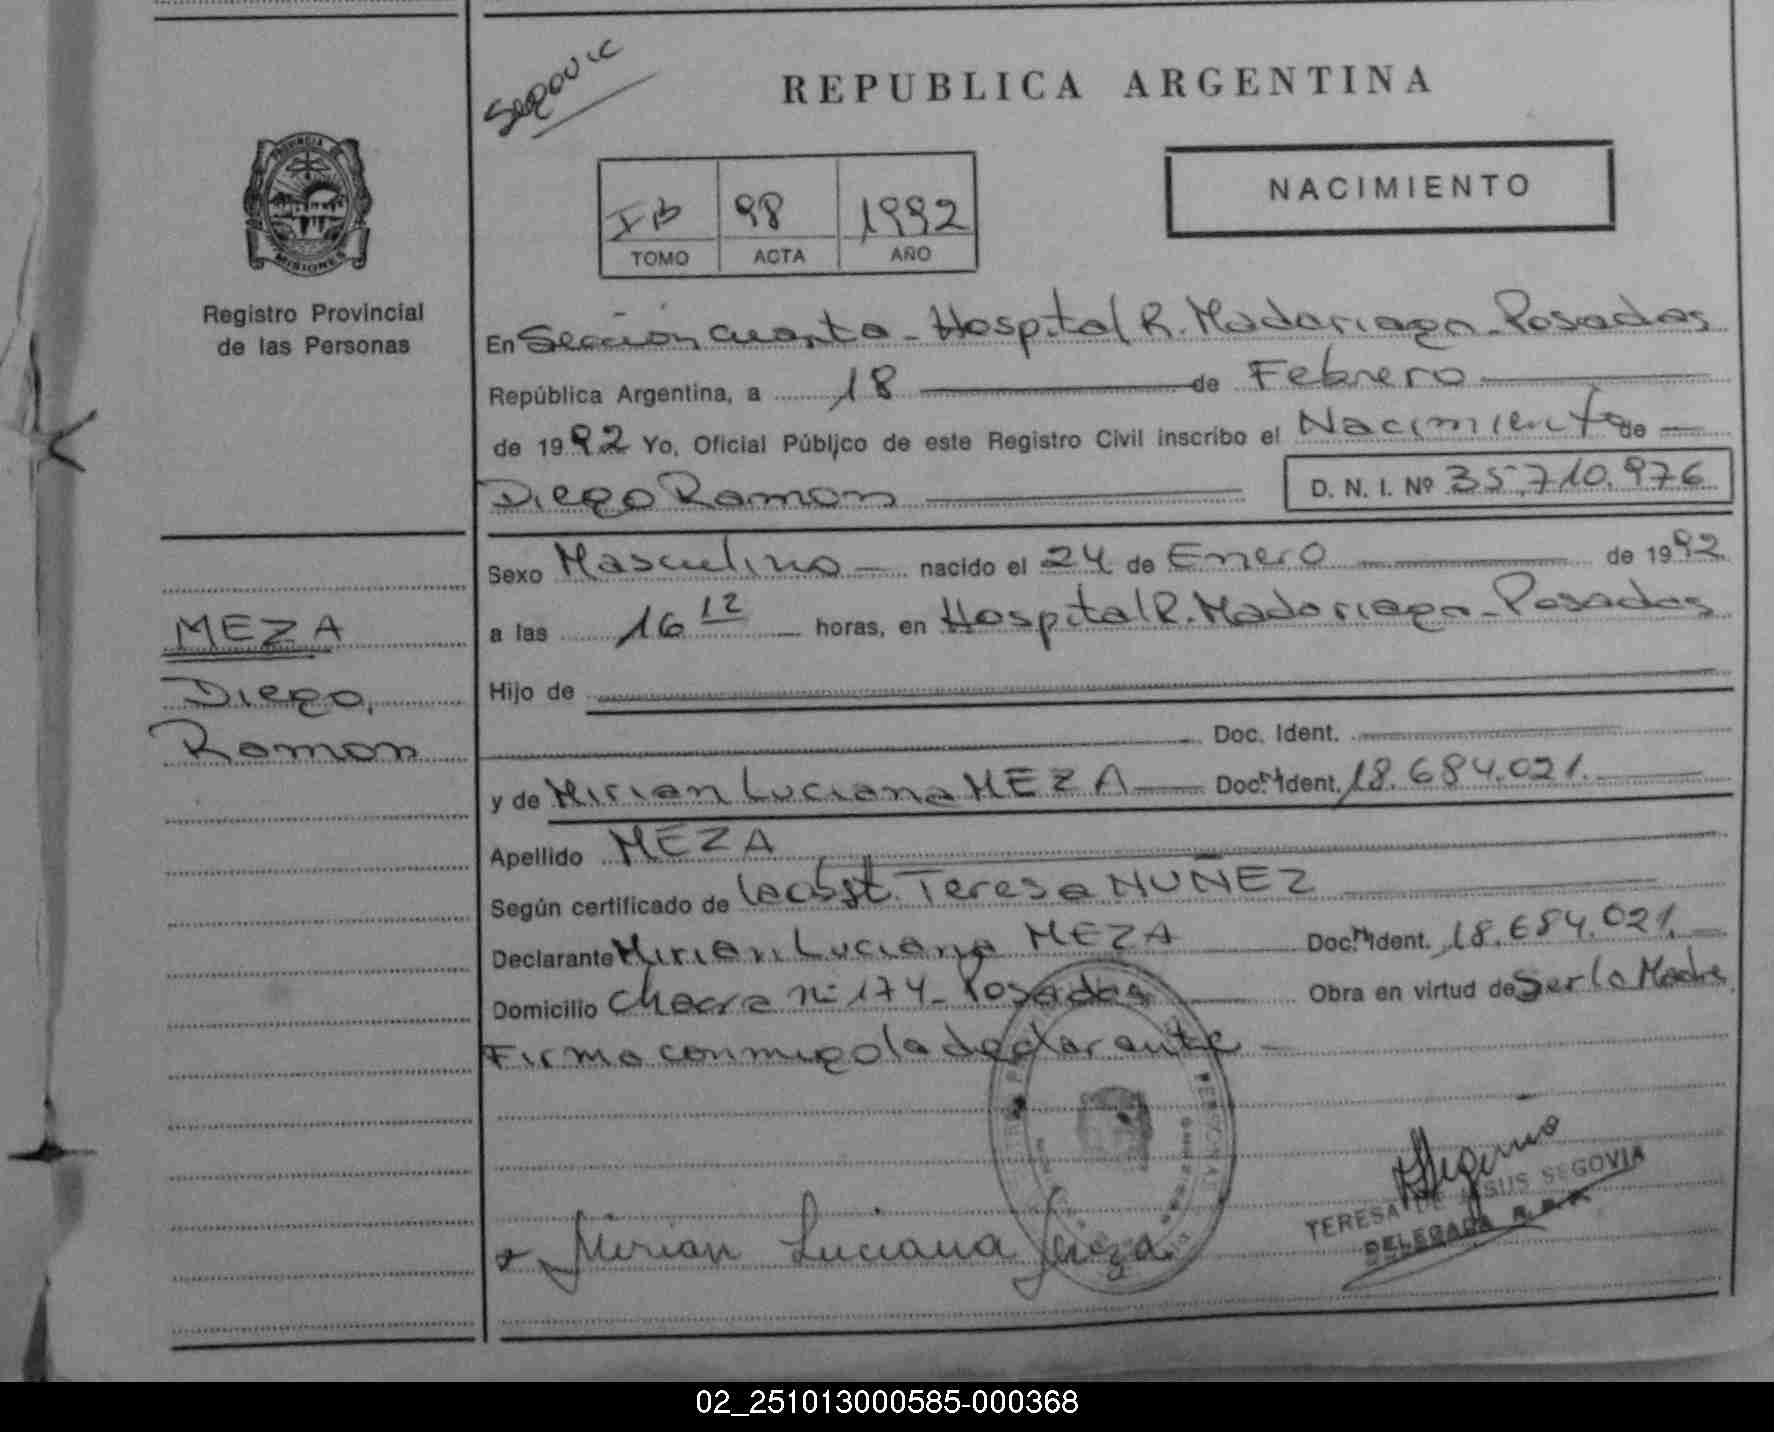 Segovia
REPUBLICA ARGENTINA
PROVINCIA DE
MISIONES
NACIMIENTO
IB 98 1992
TOMO ACTA AÑO
Registro Provincial
de las Personas
En Sección Cuarta - Hospital R. Madariaga - Posadas
República Argentina, a 18 de Febrero
de 1992 Yo, Oficial Público de este Registro Civil inscribo el Nacimiento de
Diego Ramon D. N. I. Nº 35.710.976
Sexo Masculino nacido el 24 de Enero de 1992
a las 16 12 horas, en Hospital R. Madariaga - Posadas
MEZA
Diego,
Ramon
Hijo de
Doc. Ident.
y de Mirian Luciana MEZA Doc. Ident. 18.684.021.
Apellido MEZA
Según certificado de la obst. Teresa NUÑEZ
Declarante Mirian Luciana MEZA Doc. Ident. 18.684.021.
Domicilio Chacra nº 174 - Posadas Obra en virtud de Ser la Madre
Firma conmigo la declarante -
Mirian Luciana Meza
TERESA DE JESUS SEGOVIA
DELEGADA R. P. P.
02_251013000585-000368